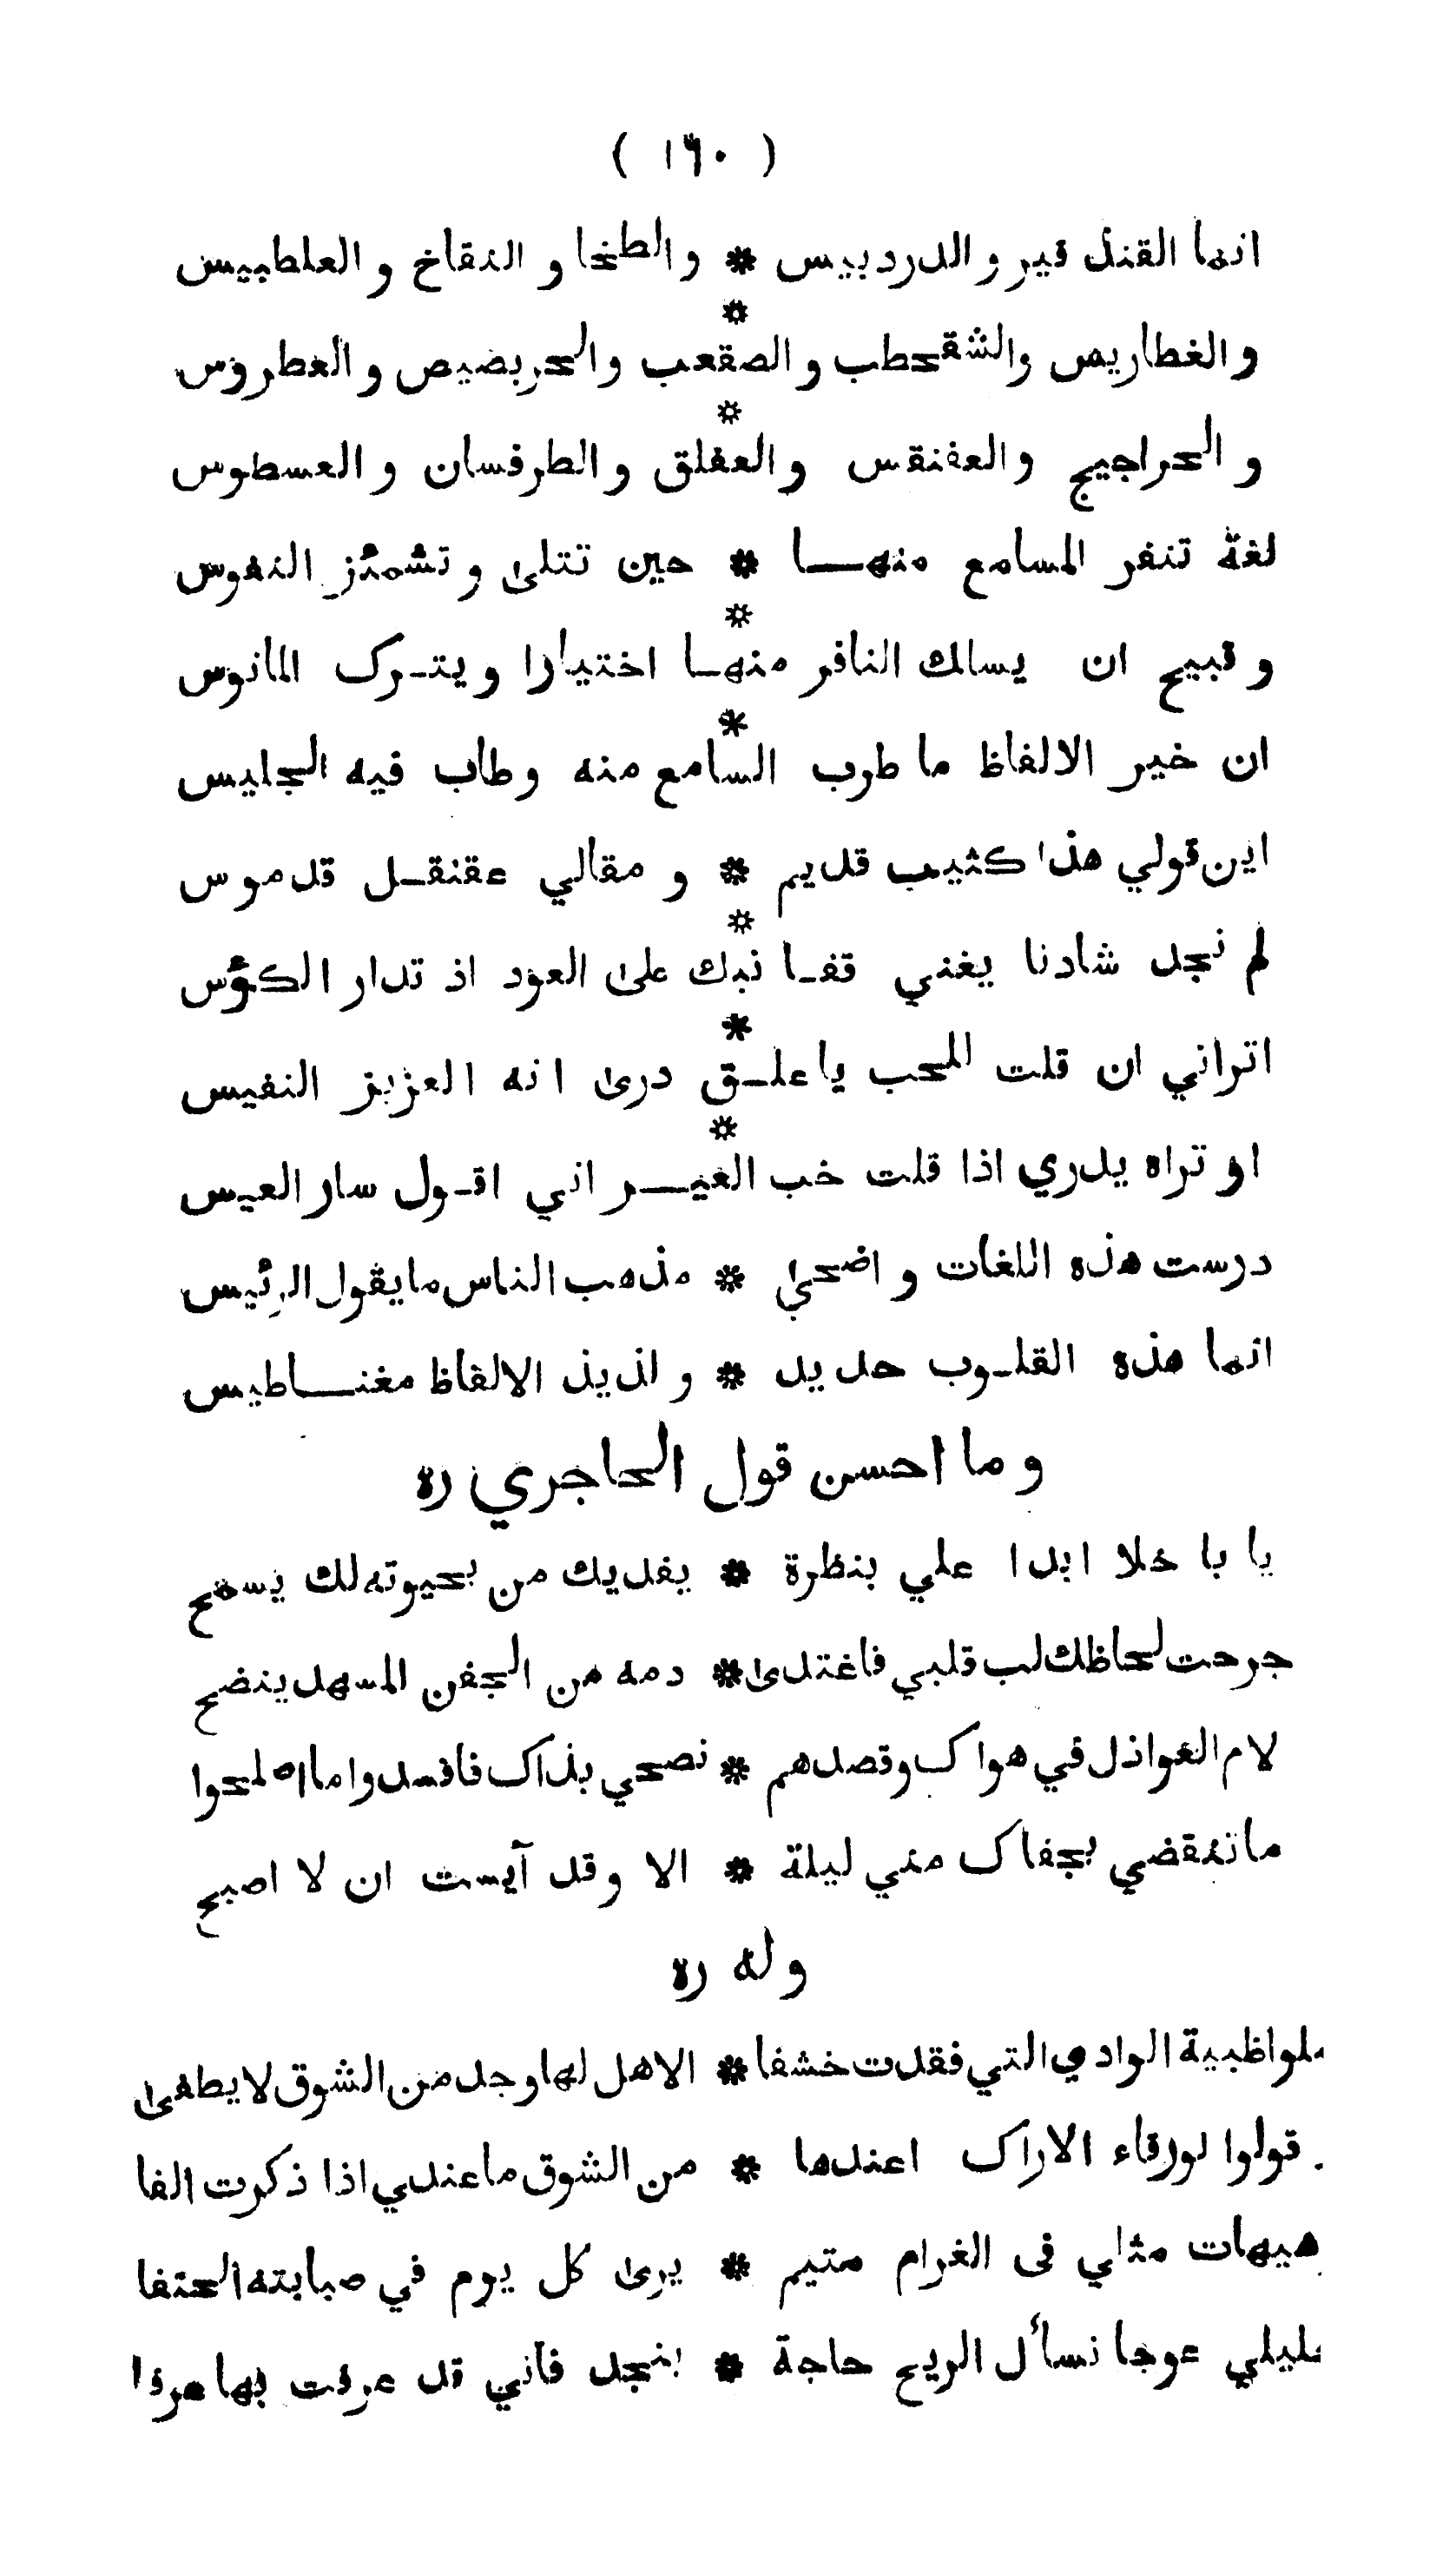 ( ١٦٠ )
انما القنذ قير و الدردبيس * و الطخا و النقاخ و العلطبيس
*
و الغطاريس والشقحطب و الصقعب والحربصيص و العطروس
*
و الحراجيج و العفنقس و العفلق و الطرفسان و العسطوس
لغة تنفر المسامع منهــا * حين تتلى و تشمئز النفوس
*
و قبيح ان يسالك النافر منهـا اختيارا و يتـرك المانوس
*
ان خير الالفاظ ما طرب السامع منه و طاب فيه الجليس
اين قولي هذا كثيب قديم * و مقالي عقنقـل قدموس
*
لم نجد شادنا يغني قفـا نبك على العود اذ تدار الكؤس
*
اتراني ان قلت للحب يا علـق درى انه العزيز النفيس
*
او تراه يدري اذا قلت خب العيــر اني اقـول سار العيس
درست هذه اللغات و اضحى * مذهب الناس ما يقول الرئيس
انما هذه القلـوب حديد * و لذيذ الالفاظ مغنــاطيس
و ما احسن قول الحاجري ره
يا با خلا ابدا علي بنظرة * يفديك من بحيوته لك يسمح
جرحت لحاظك لب قلبي فاغتدى * دمه من الجفن المسهد ينضح
لام العواذل في هواك وقصدهم * نصحي بذاك فافسدوا ما اصلحوا
ما تنقضي بجفاك مني ليلة * الا وقد آيست ان لا اصبح
و له ره
سلوا ظبية الوادي التي فقدت خشفا * الاهل لها وجد من الشوق لا يطفى
قولوا لورقاء الاراك اعندها * من الشوق ما عندي اذا ذكرت الفا
هيهات مثلي فى الغرام متيم * يرى كل يوم في صبابته الحتفا
خليلي عوجا نسأل الريح حاجة * بنجد فاني قد عرفت بها عرفا